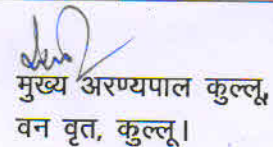 मुख्य अरण्यपाल कुल्लू,
वन वृत, कुल्लू।